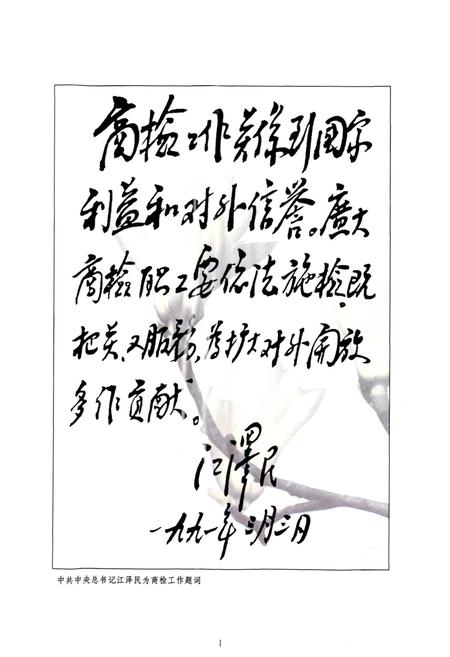 商检工作关系到国家
利益和对外信誉。广大
商检职工要依法施检,既
把关、又服务,为扩大对外开放
多作贡献。
江泽民
一九九一年三月三日
中共中央总书记江泽民为商检工作题词
1